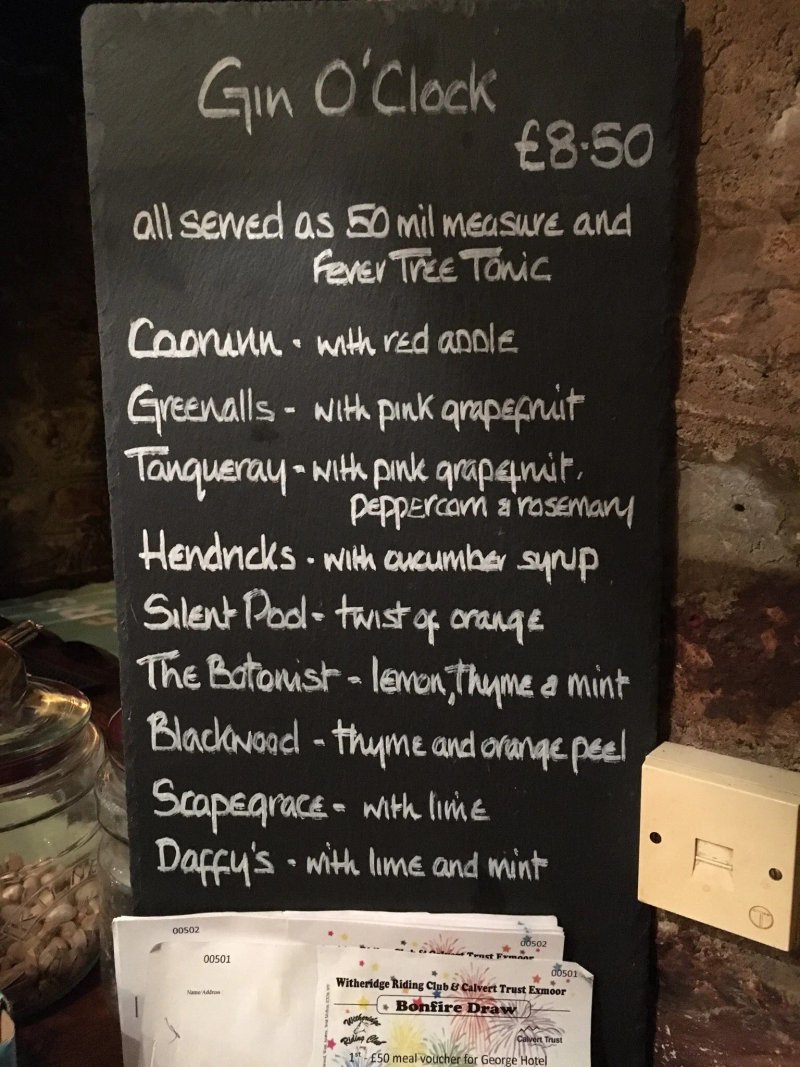 Gin O'Clock
£8.50
all served as 50 mil measure and
Fever Tree Tonic
Caorunn - with red apple
Greenalls - with pink grapefruit
Tanqueray - with pink grapefruit,
peppercorn & rosemary
Hendricks - with cucumber syrup
Silent Pool - twist of orange
The Botanist - lemon, thyme & mint
Blackwood - thyme and orange peel
Scapegrace - with lime
Daffy's - with lime and mint
00502
00502
& Calvert Trust Exmoor
00501
00501
Name/Address
Witheridge Riding Club & Calvert Trust Exmoor
Bonfire Draw
Witheridge
Riding Club
Calvert Trust
1st - £50 meal voucher for George Hotel